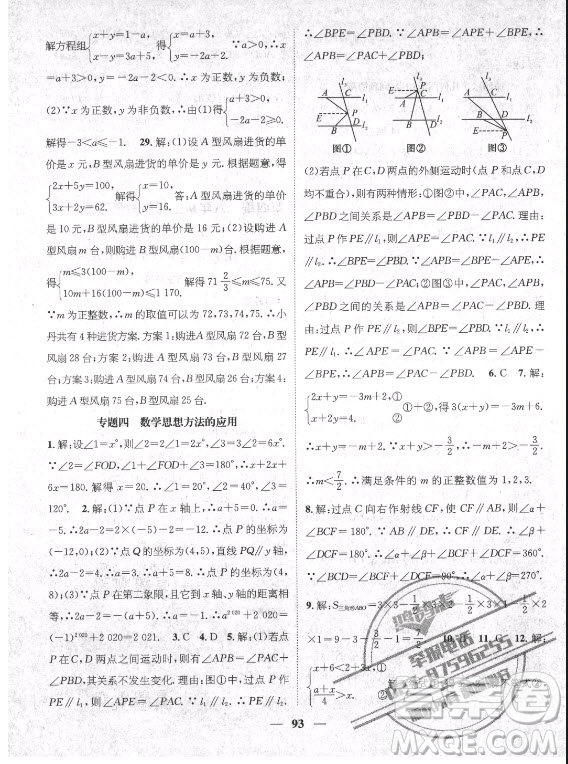 解方程组{x+y=1-a, x-y=3a+5. 得{x=a+3, y=-2a-2. ∵a>0,∴x
=a+3>0,y=-2a-2<0.
(2)∵x 为正数,y 为非负数,∴由(1)得{a+3>0, -2a-2≥0.
解得-3<a≤-1. 29.解:(1)设 A 型风扇进货的单
价是 x 元,B 型风扇进货的单价是 y 元.根据题意,得
{2x+5y=100, 3x+2y=62. 解得{x=10, y=16. 答:A 型风扇进货的单价
是 10 元,B 型风扇进货的单价是 16 元.(2)设购进 A
型风扇 m 台,则购进 B 型风扇(100-m)台.根据题意,
得{m≤3(100-m), 10m+16(100-m)≤1 290. 解得 71 2/3 ≤m≤75.又
∵m 为正整数,∴m 的取值可以为 72,73,74,75.∴小
丹共有 4 种进货方案.方案 1:购进 A 型风扇 72 台,B 型
风扇 28 台;方案 2:购进 A 型风扇 73 台,B 型风扇 27
台;方案 3:购进 A 型风扇 74 台,B 型风扇 26 台;方案
4:购进 A 型风扇 75 台,B 型风扇 25 台.
专题四 数学思想方法的应用
1.解:设∠1=x°,则∠2=∠1=x°,∠3=8∠2=8x°.
∵∠2+∠FOD+∠3=180°,∠FOD=∠4,∴x+2x+
6x=180.解得 x=20.∴∠4=2x°=40°,∠3=6x°
=120°. 2.解:(1)∵点 P 在 x 轴上,∴a+5=0.∴a=
-5.∴2a-2=2×(-5)-2=-12.∴点 P 的坐标为
(-12,0);(2)∵点 Q 的坐标为(4,5),直线 PQ∥y 轴,
∴2a-2=4.∴a=3.∴a+5=8.∴点 P 的坐标为
(4,8);(3)∵点 P 在第二象限,且它到x轴、y轴的距离
相等,∴2a-2=-(a+5).∴a=-1.∴a^2020+2 020=
(-1)^2020+2 020=2 021. 3.C 4.D 5.解:(1)若点
P 在 C,D 两点之间运动时,则有∠APB=∠PAC+
∠PBD.理由:如图①,过点 P 作 PE∥l₁,则∠APE=
∠PAC.∵l₁∥l₂,∴PE∥l₂.∴∠BPE=∠PBD.
∴∠BPE+∠APE=∠PAC+∠PBD.
∴∠APB=∠PAC+∠PBD.
图① 图② 图③
(2)若点 P 在 C,D 两点的外侧运动时(点 P 和点 C,D
均不重合),则有两种情形:①图②中,∠PAC,∠APB,
∠PBD 之间的关系是∠APB=∠PBD-∠PAC.理由:
过点 P 作 PE∥l₁,则∠APE=∠PAC.∵l₁∥l₂,
∴PE∥l₂.∴∠BPE=∠PBD.∴∠APB=∠BPE-
∠APE=∠PBD-∠PAC;②图③中,∠PAC,∠APB,
∠PBD 之间的关系是∠APB=∠PAC-∠PBD.理由:
过点 P 作 PE∥l₂,则∠BPE=∠PBD.∵l₁∥l₂,
∴PE∥l₁.∴∠APE=∠PAC.∴∠APB=∠APE-
∠BPE=∠PAC-∠PBD. 6.C 7.解:
{2x+y=-3m+2,① x+2y=4.② ①+②,得3(x+y)=-3m+6.
∴x+y=-m+2.∵x+y>-3/2,∴-m+2>-3/2.
∴m<7/2.∴满足条件的 m 的正整数值为 1,2,3.
8.解:过点 C 向右作射线 CF,使 CF∥AB,则∠α+
∠BCF=180°.∵AB∥DE,∴CF∥DE.∴∠β+
∠DCF=180°.∴∠α+∠BCF+∠β+∠DCF=360°.
∵∠C=∠BCF+∠DCF,∴∠α+∠β+∠C=360°.
9.解:S三角形ABO=3×3-1/2×3×1-1/2×3×2-1/2×2
×1=9-3/2-3-1=7/2. 11.C 12.解:
{x+6<2+3x, (a+x)/3>x.
93